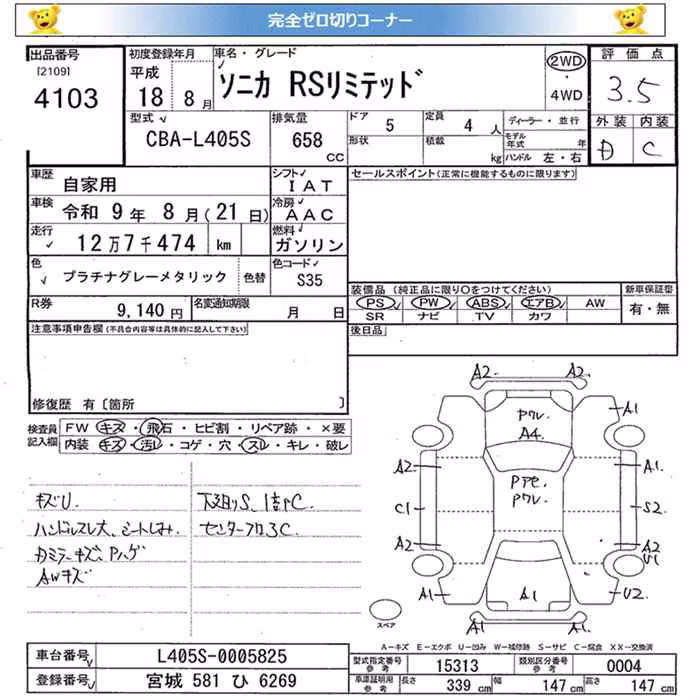 完全ゼロ切りコーナー
出品番号 初度登録年月 車名・グレード 評価点
[2109]
4103 平成 18 8月 ソニカ RSリミテッド 2WD・4WD 3.5
型式 排気量 ドア 5 定員 4人 ディーラー・並行 外装 内装
CBA-L405S 658 CC 形状 積載 kg モデル年式 年 ハンドル 左・右 D C
車歴 自家用 シフト IAT セールスポイント(正常に機能するものに限ります)
車検 令和 9年 8月(21日) 冷房 AAC
走行 12万7千474 km 燃料 ガソリン
色 プラチナグレーメタリック 色替 色コード S35
装備品(純正品に限り○をつけてください) 新車保証書
R券 9,140円 名変通知期限 月 日 PS PW ABS エアB AW 有・無
SR ナビ TV カワ
注意事項申告欄(不具合内容等は具体的に記入して下さい) 後日品
修復歴 有 [箇所 ]
検査員記入欄 FW キズ・飛石・ヒビ割・リペア跡・×要
内装 キズ・汚レ・コゲ・穴・スレ・キレ・破レ
キズU.
ハンドルスレ大、シートしみ.
カミラーキズ、Pハゲ
AWキズ
下廻りS、1部C.
センターフロアC
A2 A2
A1
Pクレ
A4
A2 A1
Pアセ
Pクレ
C1 S2
A2 A2
U1
A1 A1 U2
A1 A1
スペア
A-キズ E-エクボ U-凹み W-補修跡 S-サビ C-腐食 XX-交換済
車台番号 L405S-0005825 型式指定番号 参考 15313 類別区分番号 参考 0004
登録番号 宮城 581 ひ 6269 車庫証明用 参考 長さ 339cm 幅 147cm 高さ 147cm